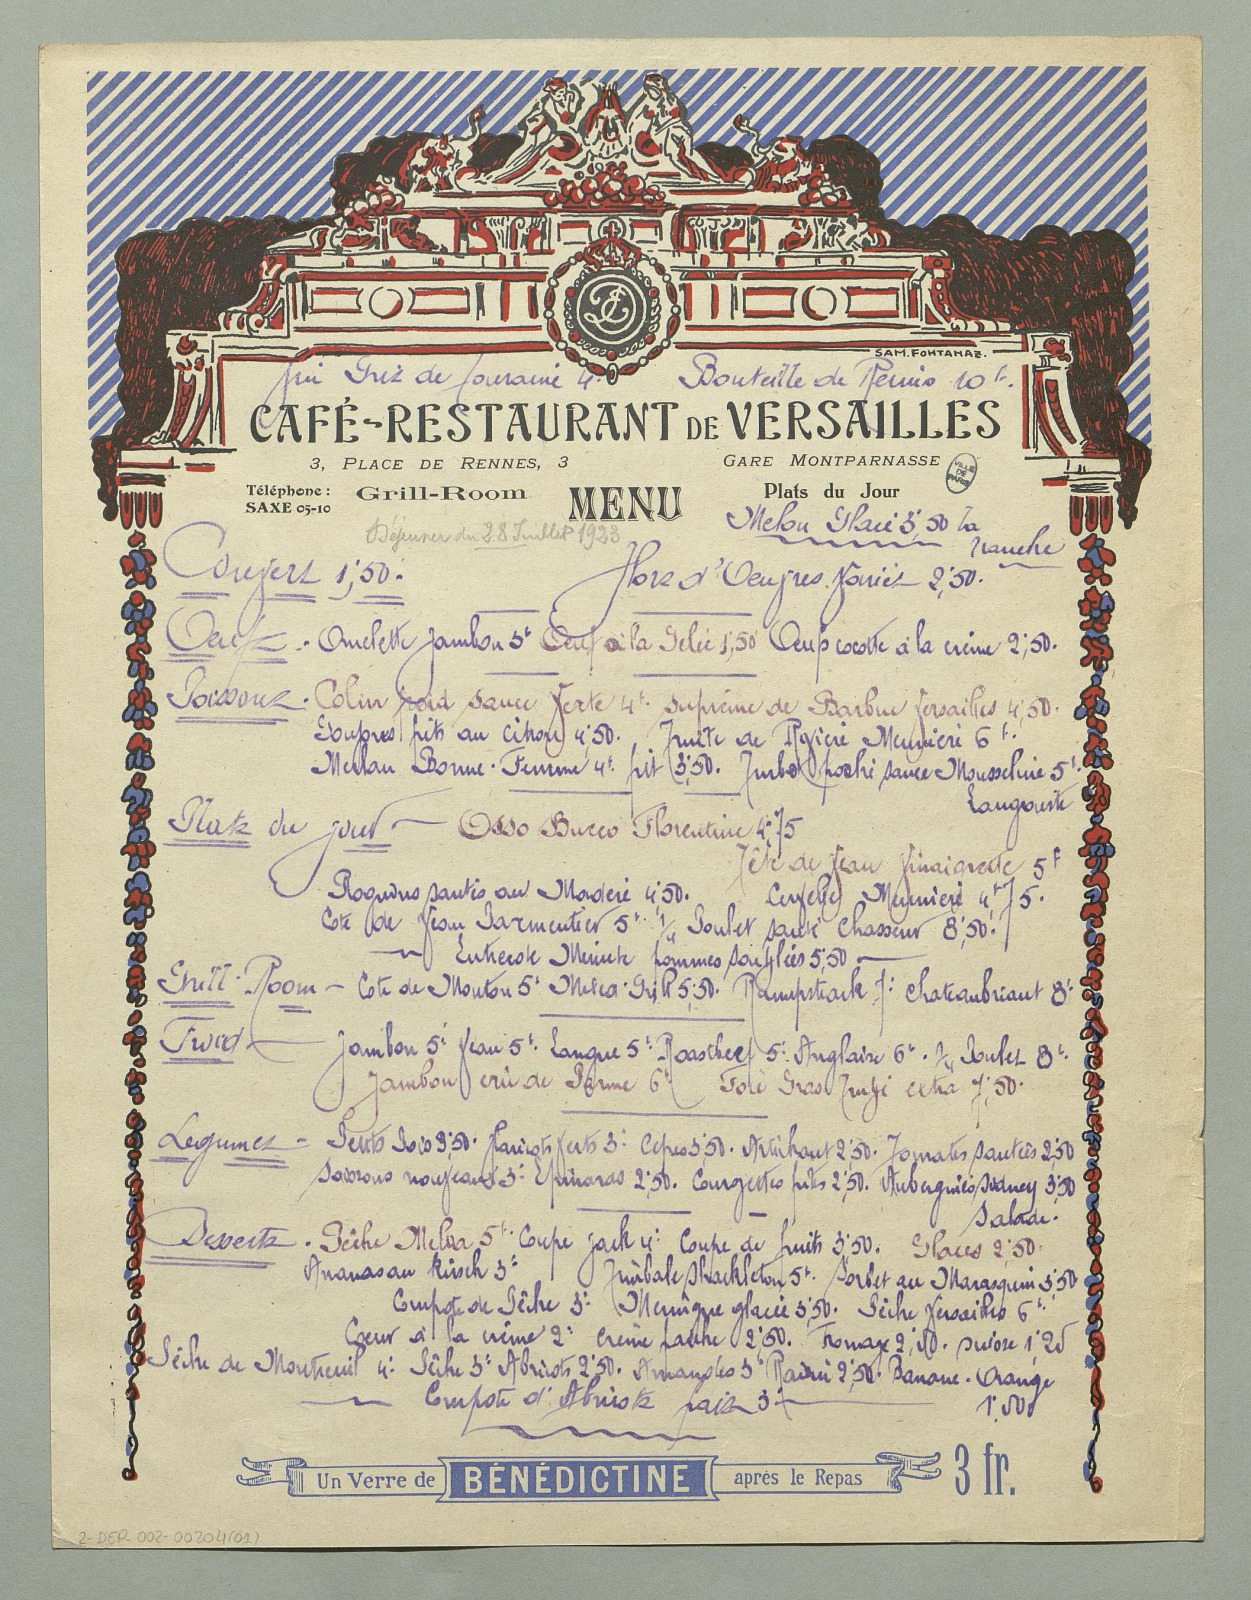 SAM. FONTANAZ.
Vin Gris de Touraine 4f. Bouteille de Reims 10f.
CAFÉ-RESTAURANT DE VERSAILLES
3, PLACE DE RENNES, 3 GARE MONTPARNASSE
VILLE DE PARIS
Téléphone: Grill-Room MENU Plats du Jour
SAXE 05-10
Melon Glacé 3,50 la
tranche
Déjeuner du 28 Juillet 1923
Couvert 1,50. Hors d'Oeuvres Variés 2,50.
Oeufs - Omelette jambon 3f Oeuf à la Gelée 1,50 Oeuf cocotte à la crème 2,50.
Poissons. Colin froid sauce Verte 4f. Suprême de Barbue Versailles 4,50.
frits au citron 4,50. Truite de Rivière Meunière 6f.
Merlan Bonne-Femme 4f. frit 3,50. Turbot poché sauce Mousseline 5f.
Langouste
Plats du jour - Osso Bucco Florentine 4,75
Tête de Veau Vinaigrette 5f
Rognons sautés au Madère 4,50. Cervelle Meunière 4f75.
Cote de Veau Parmentier 5f. 1/4 Poulet sauté Chasseur 8,50.
Entrecote Minute pommes soufflées 5,50
Grill-Room - Cote de Mouton 5f. Mixed-Grill 5,50. Rumpsteack 7f. Chateaubriant 8f.
Froid - Jambon 5f. Veau 5f. Langue 5f. Roastbeef 5f. Anglaise 6f. 1/4 Poulet 8f.
Jambon cru de Parme 6f. Foie Gras Truffé extra 7,50.
Légumes - Petits Pois 3,50. Haricots Verts 3f. Cèpes 3,50. Artichaut 2,50. Tomates sautées 2,50
nouveaux 3f. Epinards 2,50. Courgettes frits 2,50. Aubergines Sidney 3,50
Salade.
Desserts. Pêche Melba 5f. Coupe Jack 4f. Coupe de fruits 3,50. Glaces 2,50.
Ananas au Kirsch 3f Timbale Shackleton 5f. Sorbet au Marasquin 3,50
Compote de Pêche 3f. Meringue glacée 3,50. Pêche Versailles 6f.
Coeur à la crème 2f. Crème 2,50. Fromage 2,50. suisse 1f25
Pêche de Montreuil 4f. Pêche 3f. Abricots 2,50. Amandes 3f Raisin 2,50. Banane. Orange
Compote d'Abricots frais 3f. 1,50
Un Verre de BÉNÉDICTINE après le Repas 3 fr.
2-DEP-002-00204(01)